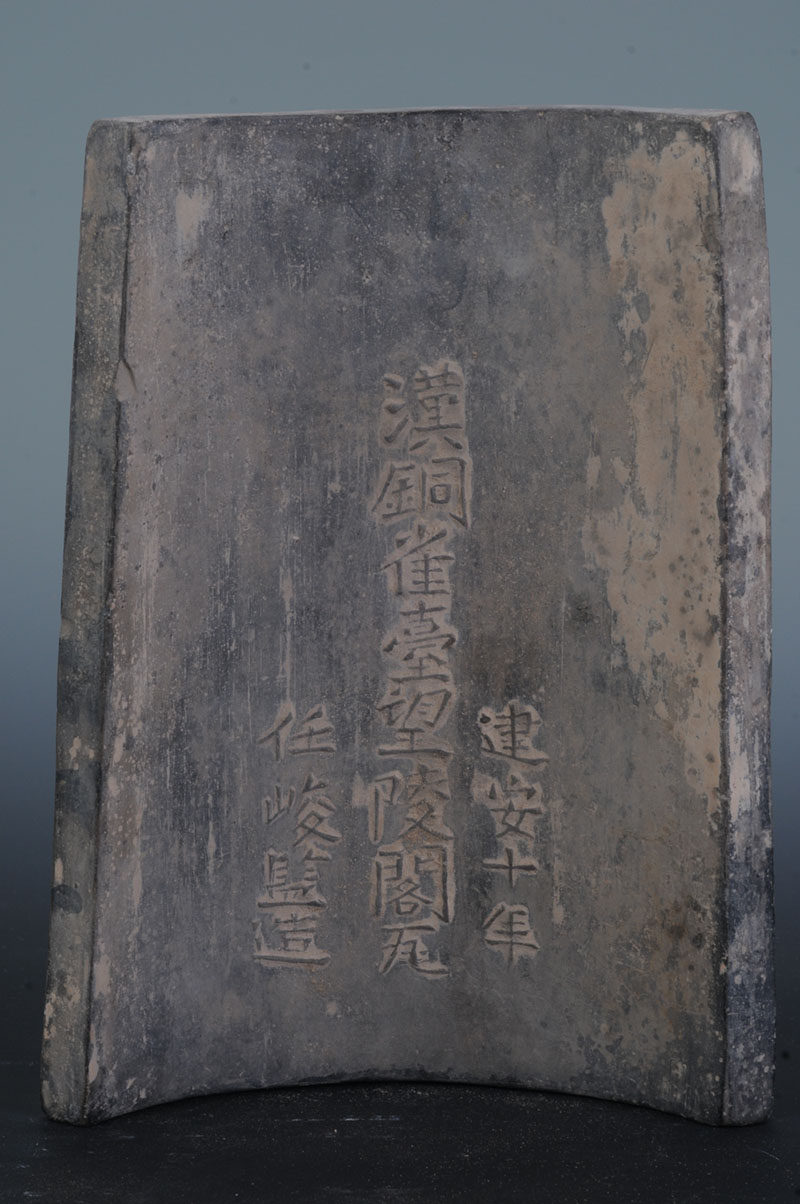 建安十年
漢銅雀臺望陵閣瓦
任峻監造